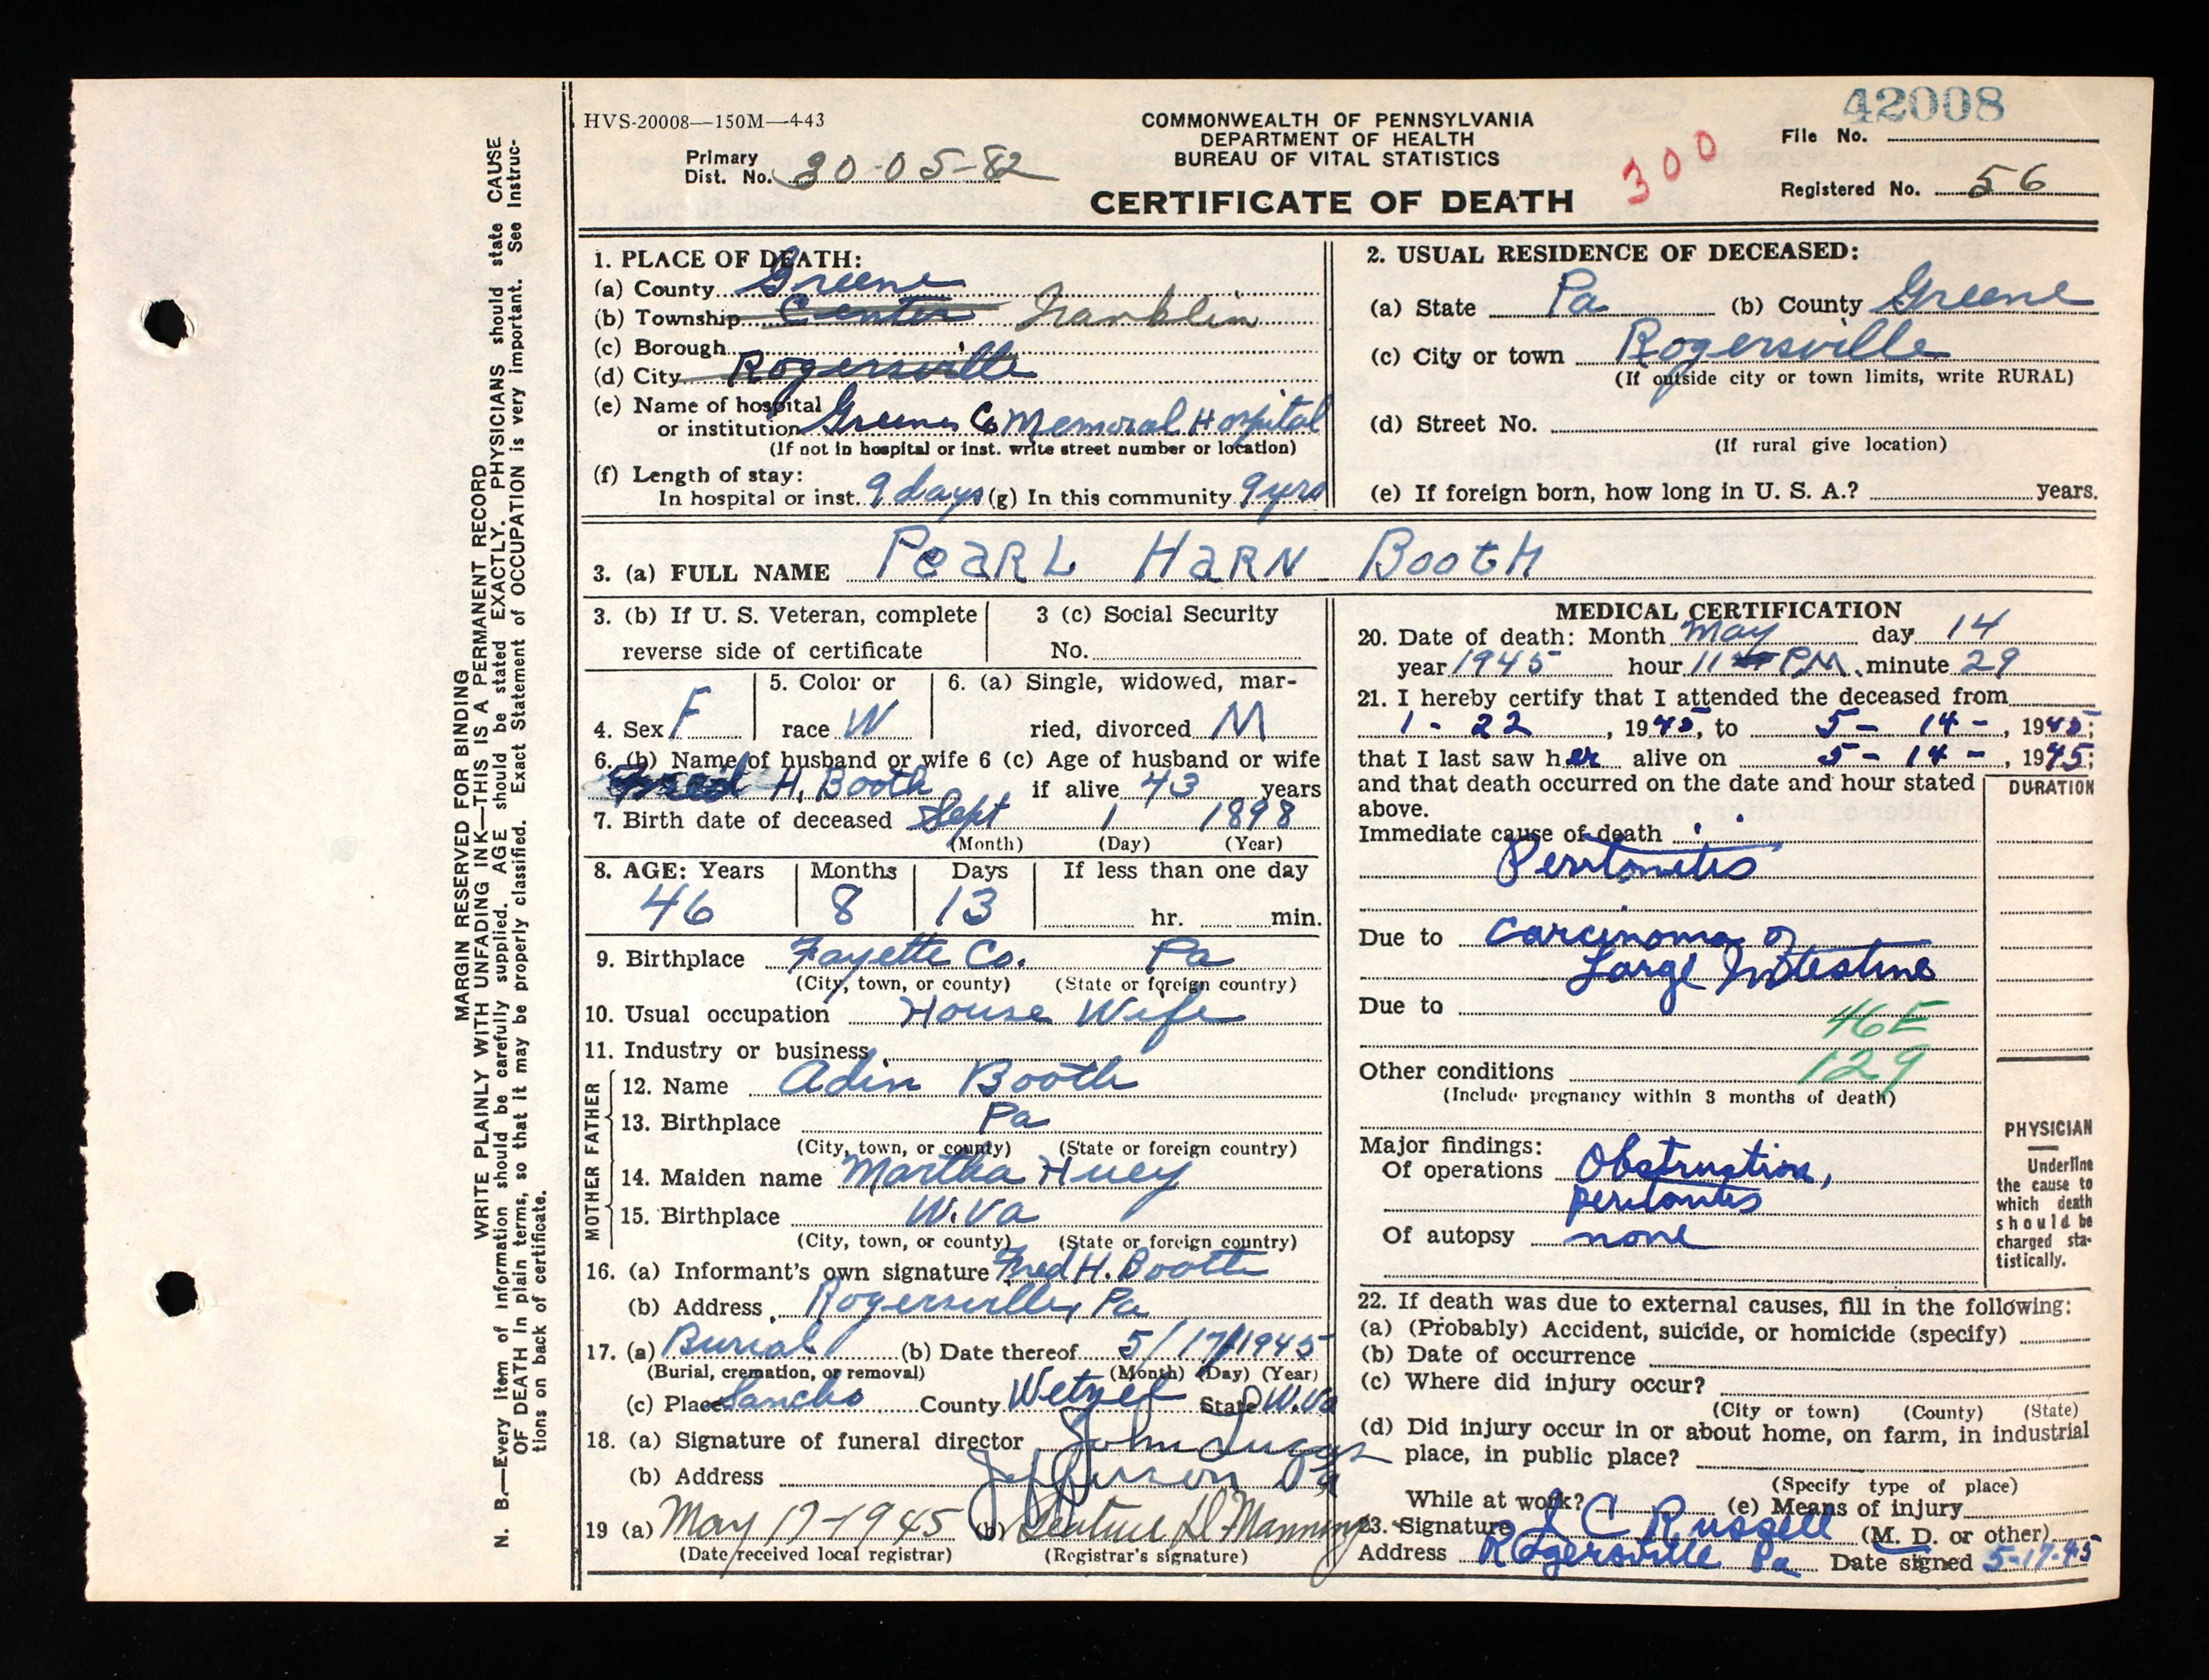 HVS-20008—150M—4-43
COMMONWEALTH OF PENNSYLVANIA
DEPARTMENT OF HEALTH
BUREAU OF VITAL STATISTICS
CERTIFICATE OF DEATH
Primary
Dist. No. 30-05-82
300
42008
File No.
Registered No. 56
1. PLACE OF DEATH:
(a) County Greene
(b) Township Center Franklin
(c) Borough
(d) City Rogersville
(e) Name of hospital
or institution Greene Co Memoral Hospital
(If not in hospital or inst. write street number or location)
(f) Length of stay:
In hospital or inst. 9 days (g) In this community 9 yrs
2. USUAL RESIDENCE OF DECEASED:
(a) State Pa (b) County Greene
(c) City or town Rogersville
(If outside city or town limits, write RURAL)
(d) Street No.
(If rural give location)
(e) If foreign born, how long in U. S. A.? years.
3. (a) FULL NAME PeaRL HaRN BootH
3. (b) If U. S. Veteran, complete
reverse side of certificate
3 (c) Social Security
No.
4. Sex F
5. Color or
race W
6. (a) Single, widowed, mar-
ried, divorced M
6. (b) Name of husband or wife 6 (c) Age of husband or wife
Fred H. Booth if alive 43 years
7. Birth date of deceased Sept 1 1898
(Month) (Day) (Year)
8. AGE: Years Months Days If less than one day
46 8 13 hr. min.
9. Birthplace Fayette Co. Pa
(City, town, or county) (State or foreign country)
10. Usual occupation House Wife
11. Industry or business
FATHER
12. Name Adin Booth
13. Birthplace Pa
(City, town, or county) (State or foreign country)
MOTHER
14. Maiden name Martha Huey
15. Birthplace W.Va
(City, town, or county) (State or foreign country)
16. (a) Informant's own signature Fred H. Booth
(b) Address Rogersville, Pa
17. (a) Burial (b) Date thereof 5/17/1945
(Burial, cremation, or removal) (Month) (Day) (Year)
(c) Place Sancho County Wetzel State W.Va
18. (a) Signature of funeral director John
(b) Address Jefferson Pa
19 (a) May 17-1945 (b) Beatrice D. Manning
(Date received local registrar) (Registrar's signature)
MEDICAL CERTIFICATION
20. Date of death: Month May day 14
year 1945 hour 11 PM minute 29
21. I hereby certify that I attended the deceased from
1-22, 1945, to 5-14-, 1945;
that I last saw her alive on 5-14-, 1945;
and that death occurred on the date and hour stated
above.
DURATION
Immediate cause of death
Peritonitis
Due to Carcinoma of
Large Intestine
Due to
46E
129
Other conditions
(Include pregnancy within 3 months of death)
Major findings:
Of operations Obstruction,
peritonitis
Of autopsy none
PHYSICIAN
Underline
the cause to
which death
should be
charged sta-
tistically.
22. If death was due to external causes, fill in the following:
(a) (Probably) Accident, suicide, or homicide (specify)
(b) Date of occurrence
(c) Where did injury occur?
(City or town) (County) (State)
(d) Did injury occur in or about home, on farm, in industrial
place, in public place?
(Specify type of place)
While at work? (e) Means of injury
23. Signature C Russell (M. D. or other)
Address Rogersville Pa Date signed 5-17-45
MARGIN RESERVED FOR BINDING
WRITE PLAINLY WITH UNFADING INK—THIS IS A PERMANENT RECORD
N. B.—Every item of information should be carefully supplied. AGE should be stated EXACTLY. PHYSICIANS should state CAUSE
OF DEATH in plain terms, so that it may be properly classified. Exact Statement of OCCUPATION is very important. See Instruc-
tions on back of certificate.